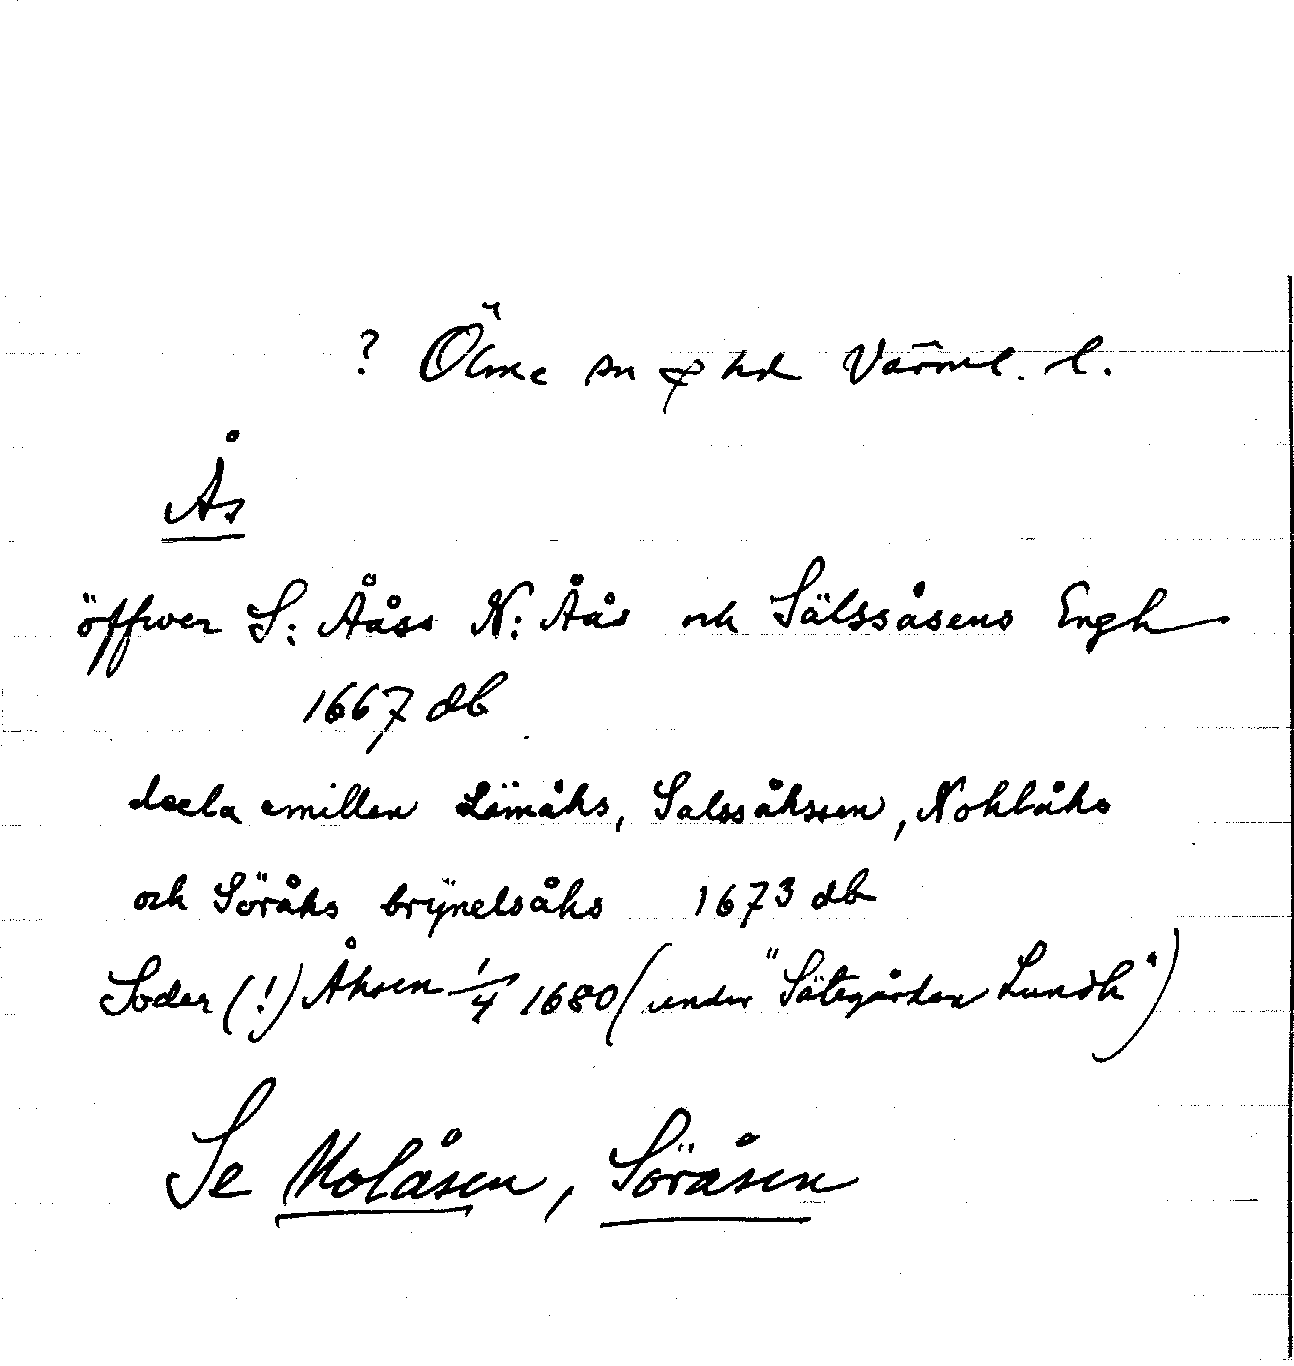 ? Ölme sn & hd Värml. l.
Ås
öffwer S: Ååss N: Åås och Sälssåsens Engh
1667 db
deela emillan Lämåhs, Salssåhssen, Nohlåhs
och Söråhs brÿnelsåhs 1673 db
Soder (!) Åhsen 1/4 1680 (under "Sätegården Lundh")
Se Nolåsen, Söråsen